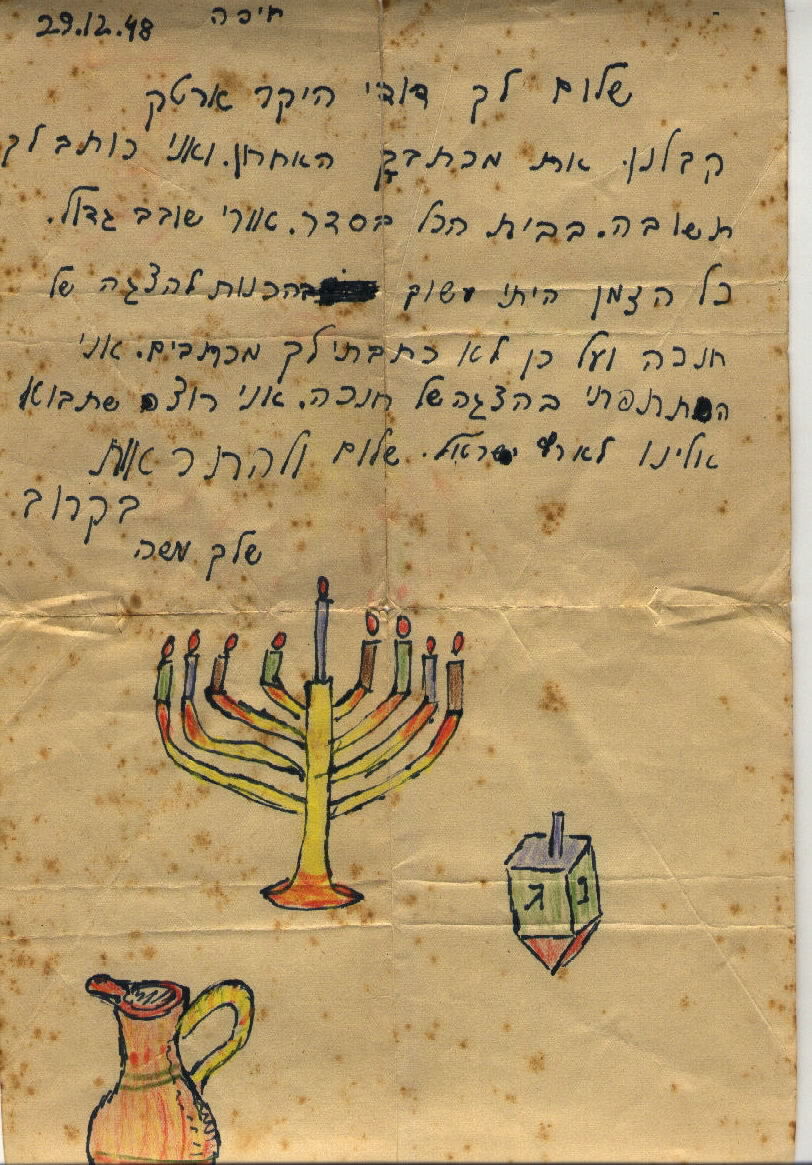 חיפה 29.12.48
שלום לך דודי היקר ארטק
קבלנו את מכתבך האחרון. ואני כותב לך
תשובה. בבית הכל בסדר. אורי שובב גדול.
כל הצמן היתי עסוק בהכנות להצגה של
חנכה ועל כן לא כתבתי לך מכתבים. אני
השתתפתי בהצגה של חנכה. אני רוצה שתבוא
אלינו לארץ ישראל. שלום ולהתראות
בקרוב
שלך משה
ג נ